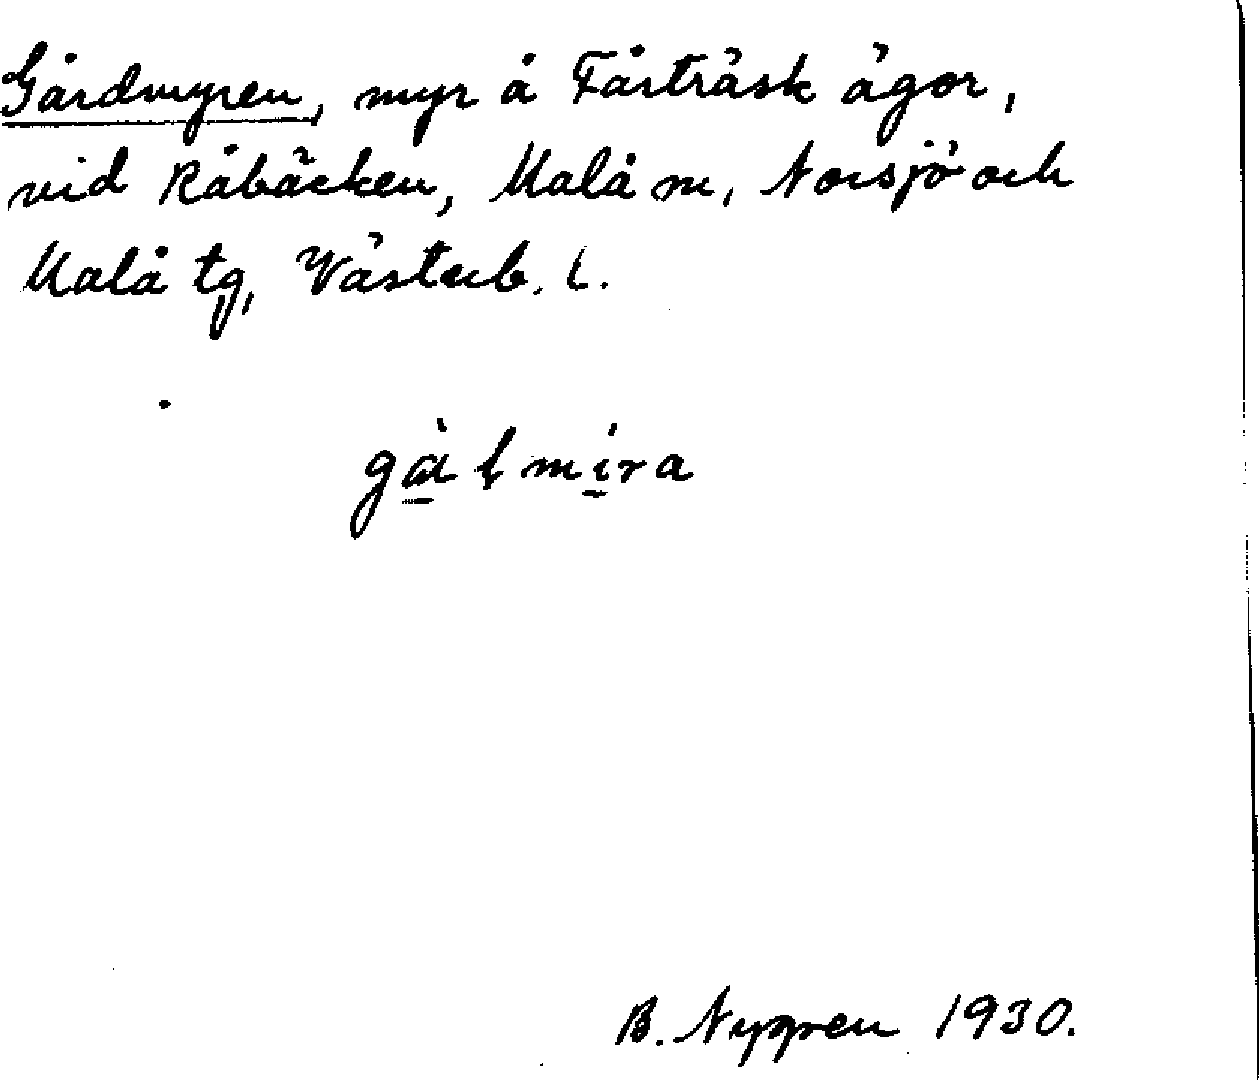 Gårdmyren, myr å Fårträsk ägor,
vid Råbäcken, Malå sn, Norsjö och
Malå tg, Västerb. l.
B. Nygren 1930.